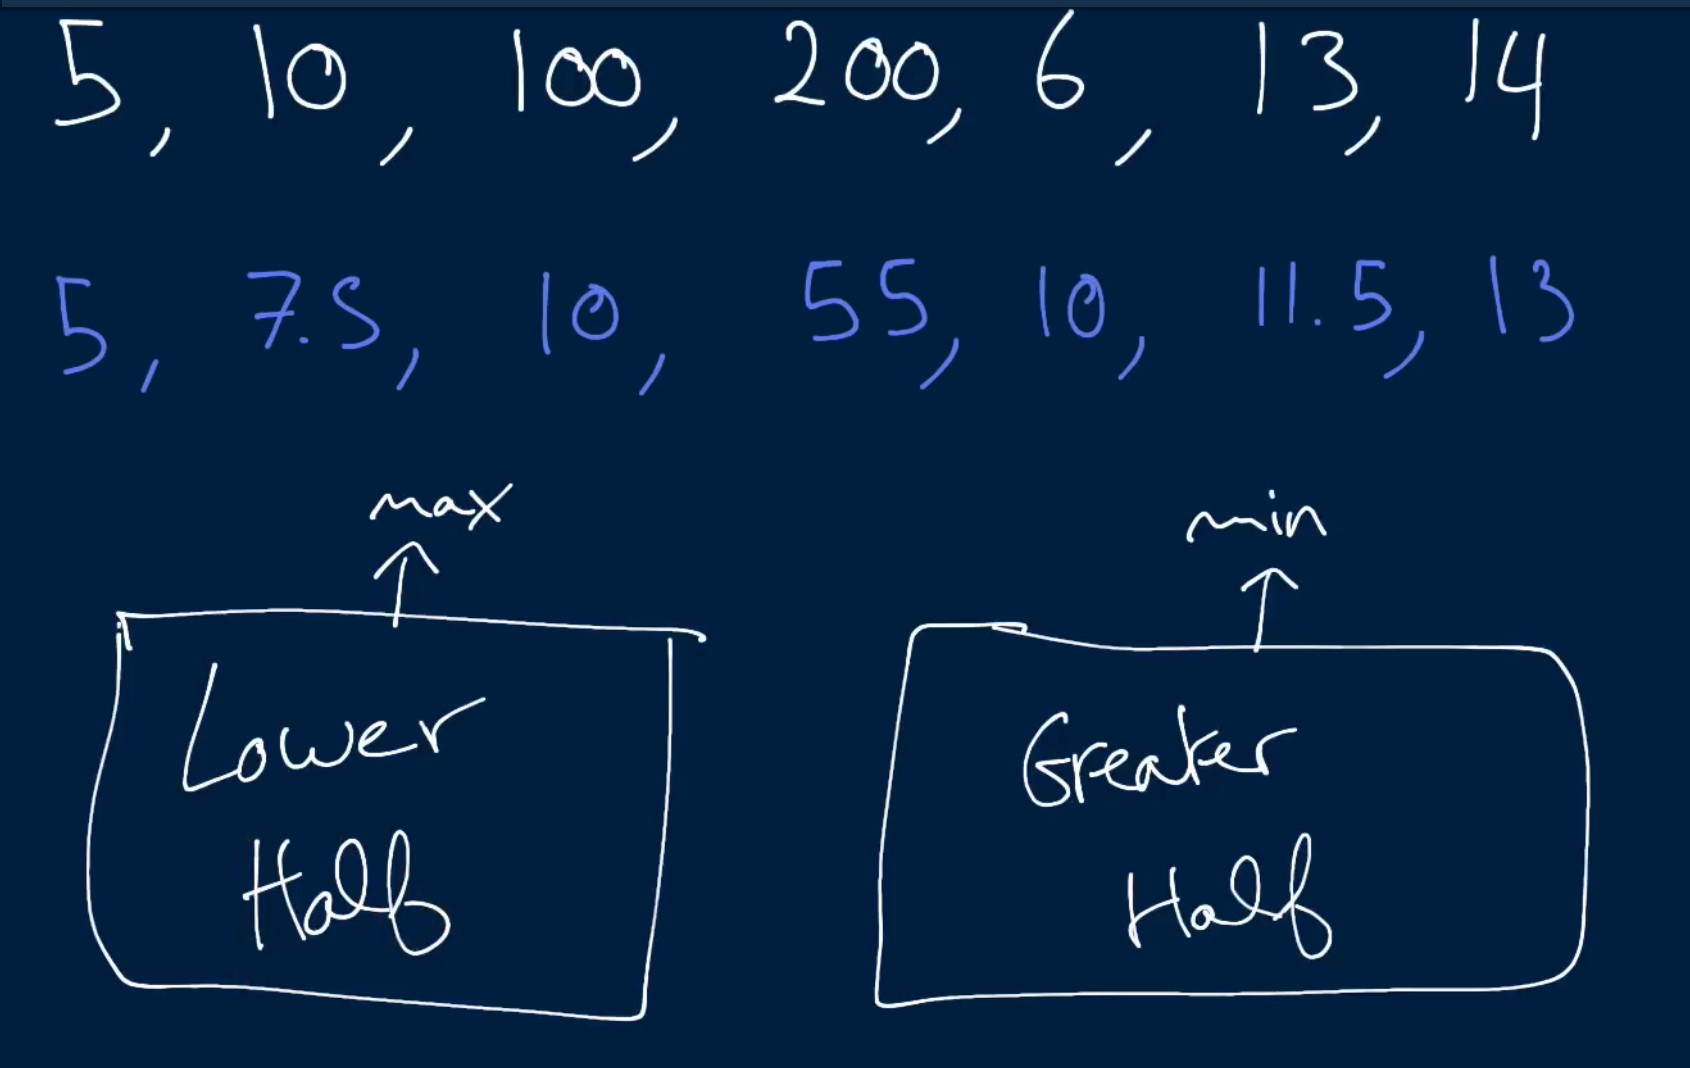 5, 10, 100, 200, 6, 13, 14
5, 7.5, 10, 55, 10, 11.5, 13
max
min
Lower
Half
Greater
Half